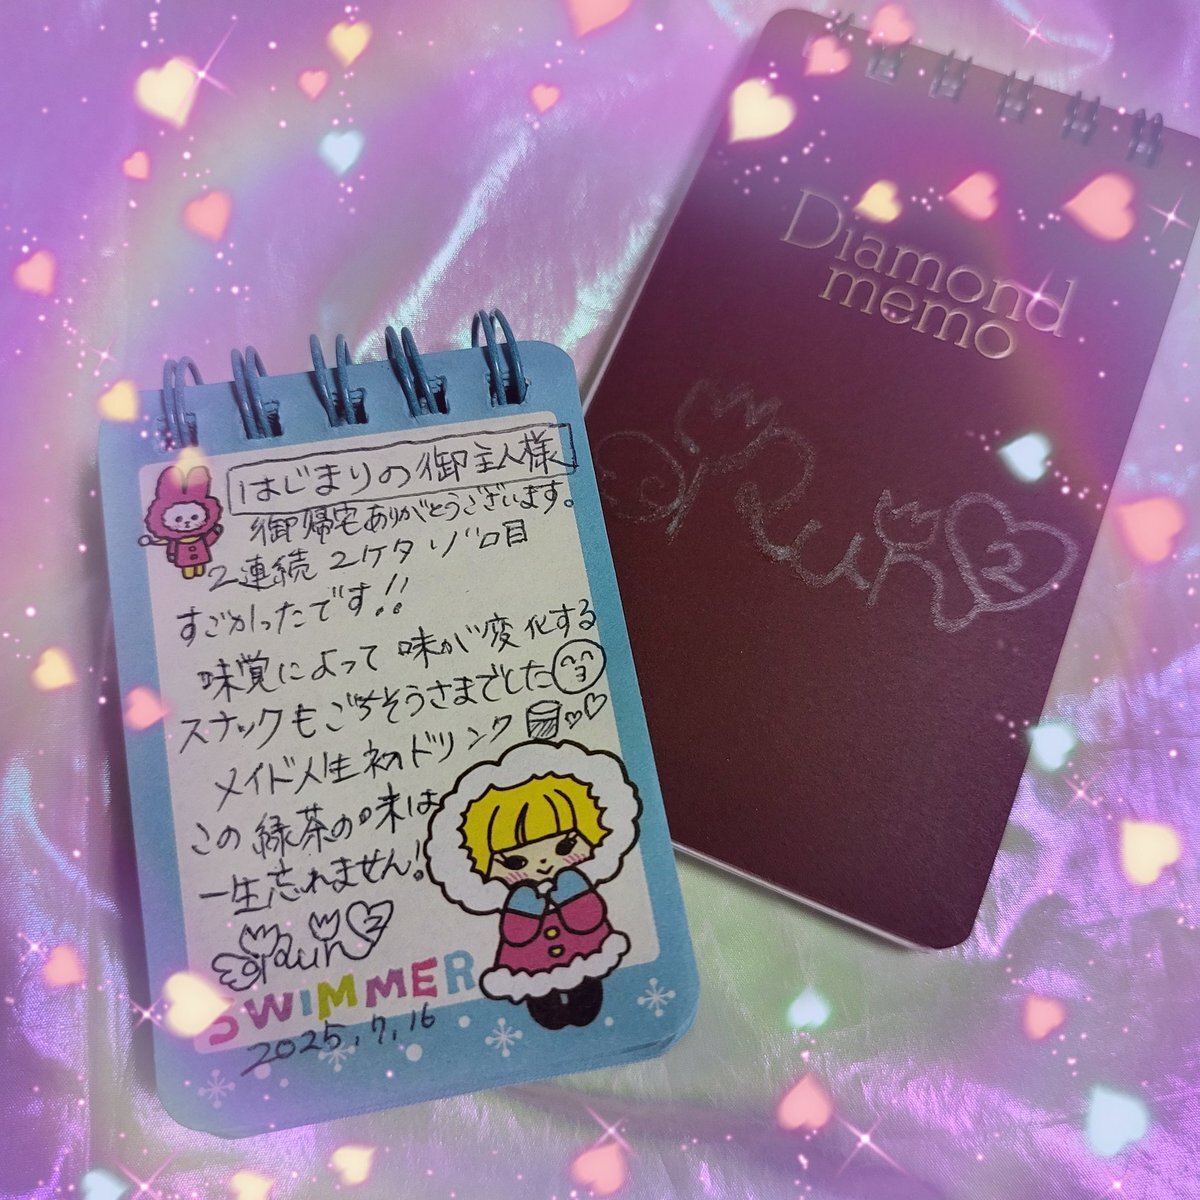 はじまりの御主人様
御帰宅ありがとうございます。
2連続 2ケタゾロ目
すごかったです!!
味覚によって味が変化する
スナックもごちそうさまでした
メイド人生初ドリンク
この緑茶の味は
一生忘れません!
SWIMMER
2025.7.16
Diamond
memo